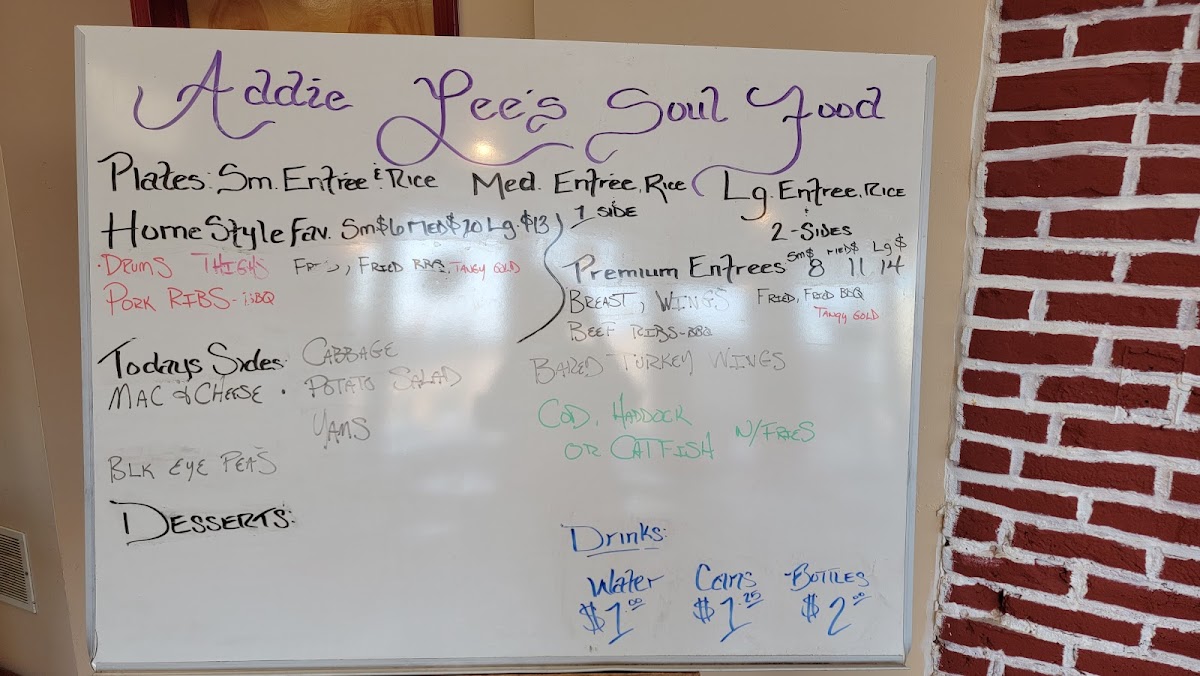 Addie Lee's Soul Food
Plates: Sm. Entree & Rice Med. Entree, Rice Lg. Entree, Rice
1 Side
2-Sides
Home Style Fav. Sm$6 Med$10 Lg. $13
Drums Thighs Fried, Fried BBQ, Tangy Gold
Pork Ribs-BBQ
Premium Entrees Sm$ 8 Med$ 11 Lg$ 14
Breast, Wings Fried, Fried BBQ
Tangy Gold
Beef Ribs-BBQ
Baked Turkey Wings
Cod, Haddock
or Catfish w/Fries
Todays Sides: Cabbage
Mac & Cheese · Potato Salad
Yams
Blk Eye Peas
Desserts:
Drinks:
Water Cans -Bottles
$1.00 $1.25 $2.00